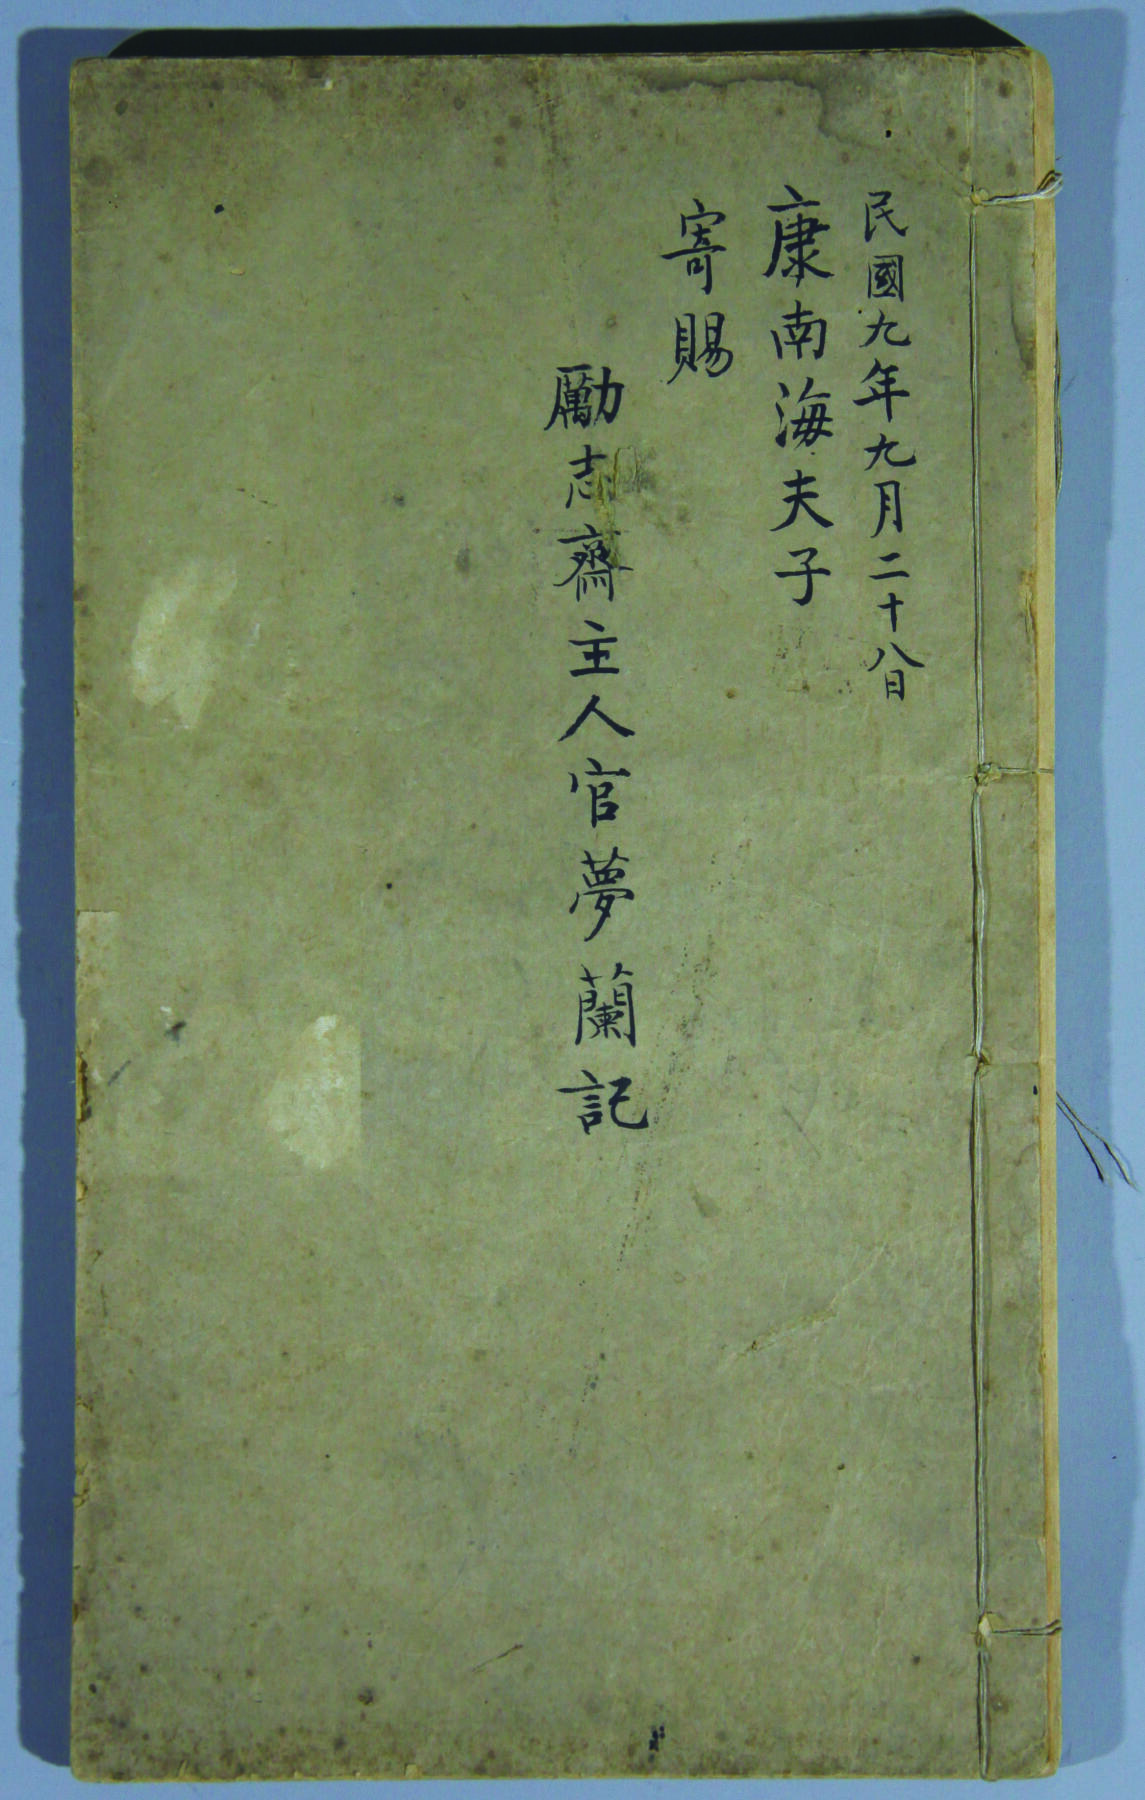 民國九年九月二十八日
康南海夫子
寄賜
勵志齋主人官夢蘭記